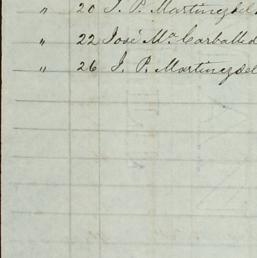 " 20 J. P. Martinez del
" 22 José Ma Carballed
" 26 J. P. Martinez del